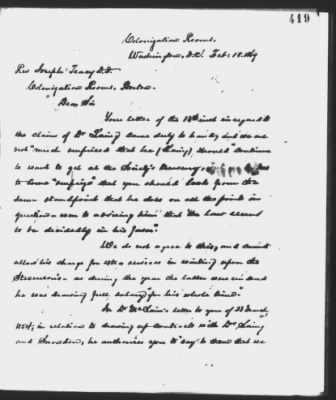 419
Colonization Rooms,
Washington, D.C. Feb: 18.
Rev Joseph Tracy D.D.
Colonization Rooms, Boston.
Dear Sir
Your letter of the inst in regard to
the claim of Dr Laing came duly to hand, but we are
not much surprised that he (Laing), should continue
to want to get at the Society's treasury,
to that you should look from the
same standpoint that he does on all the points in
question even to advising him that the law seems
to be decidedly in his favor."
We do not agree to this, and cannot
allow his charge for extra services in waiting upon the
as during the year the latter was in and
he was drawing full salary "for his whole time."
In Dr McLain's letter to you of 23 March,
1854, in relation to drawing up contracts with Drs Laing
and Snowden, he authorizes you to say to them that we